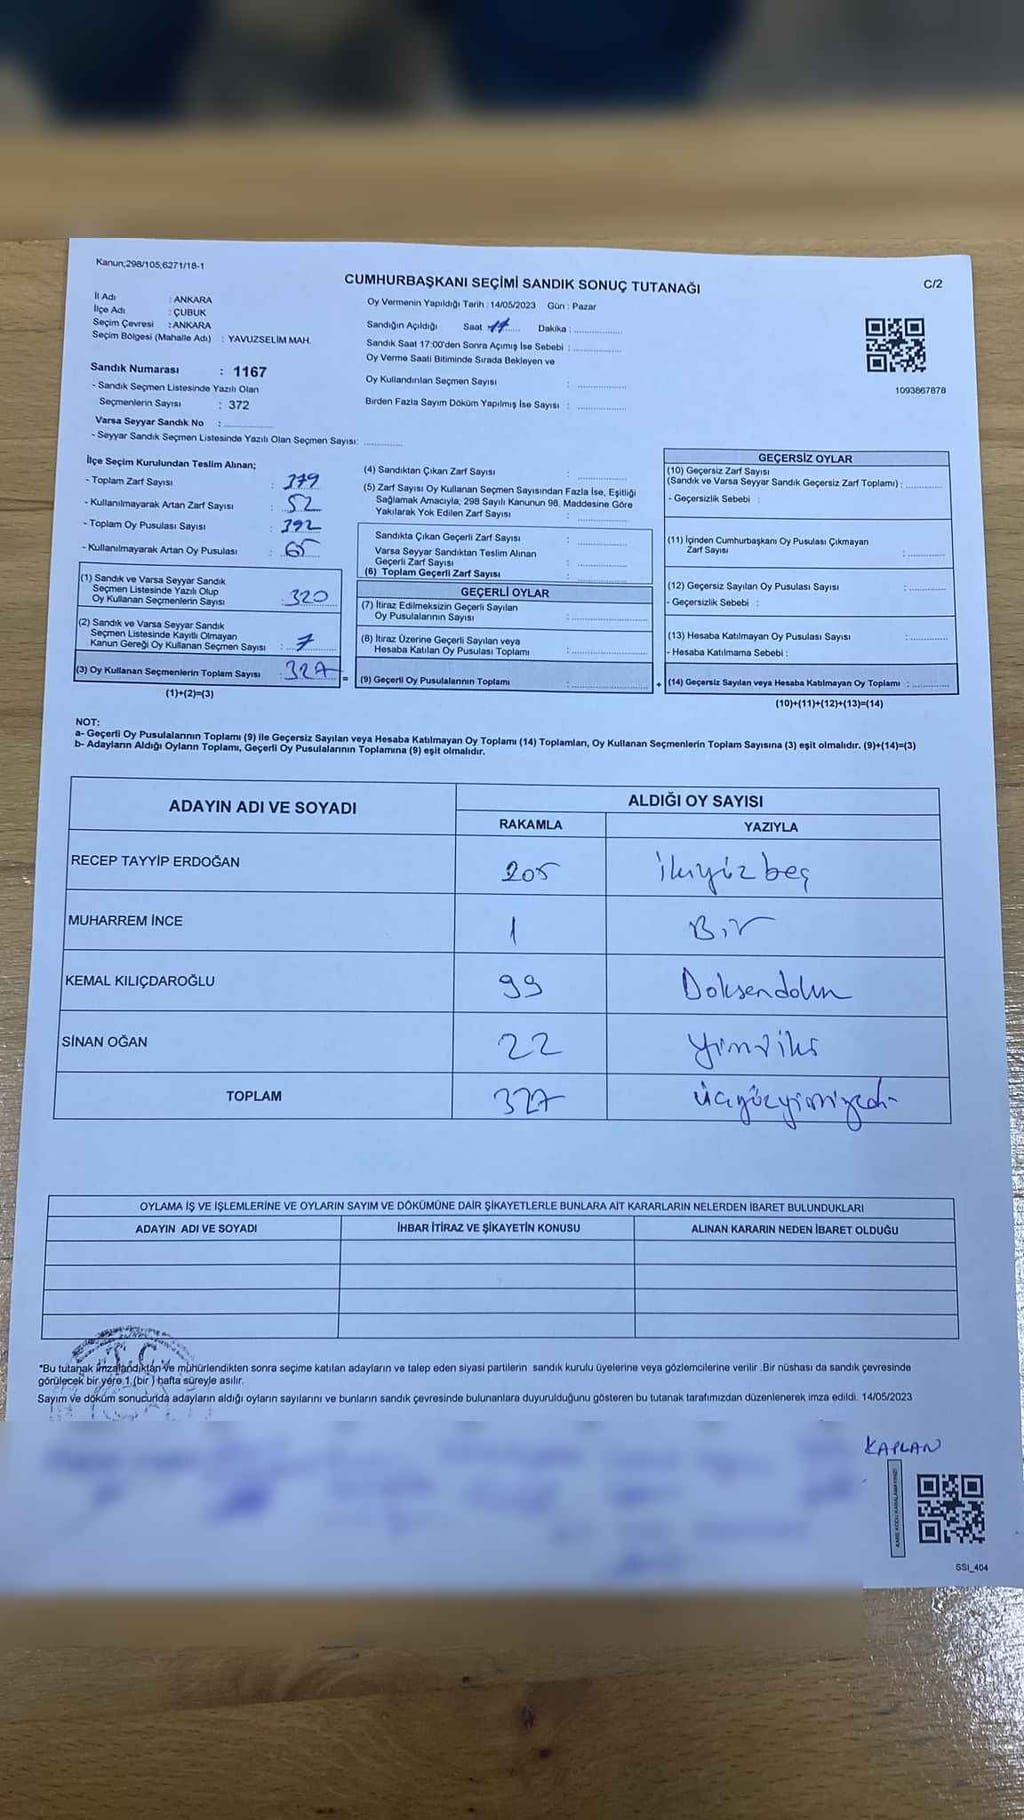 Kanun;298/105,6271/18-1
CUMHURBAŞKANI SEÇİMİ SANDIK SONUÇ TUTANAĞI
C/2
İl Adı : ANKARA
İlçe Adı : ÇUBUK
Seçim Çevresi : ANKARA
Seçim Bölgesi (Mahalle Adı) : YAVUZSELİM MAH.
Oy Vermenin Yapıldığı Tarih : 14/05/2023 Gün : Pazar
Sandığın Açıldığı Saat 17 Dakika :
Sandık Saat 17:00'den Sonra Açılmış İse Sebebi :
Oy Verme Saati Bitiminde Sırada Bekleyen ve
Oy Kullandırılan Seçmen Sayısı :
Birden Fazla Sayım Döküm Yapılmış İse Sayısı :
1093867878
Sandık Numarası : 1167
- Sandık Seçmen Listesinde Yazılı Olan
Seçmenlerin Sayısı : 372
Varsa Seyyar Sandık No :
- Seyyar Sandık Seçmen Listesinde Yazılı Olan Seçmen Sayısı:
İlçe Seçim Kurulundan Teslim Alınan;
- Toplam Zarf Sayısı : 379
- Kullanılmayarak Artan Zarf Sayısı : 52
- Toplam Oy Pusulası Sayısı : 392
- Kullanılmayarak Artan Oy Pusulası : 65
(1) Sandık ve Varsa Seyyar Sandık
Seçmen Listesinde Yazılı Olup
Oy Kullanan Seçmenlerin Sayısı : 320
(2) Sandık ve Varsa Seyyar Sandık
Seçmen Listesinde Kayıtlı Olmayan
Kanun Gereği Oy Kullanan Seçmen Sayısı : 7
(3) Oy Kullanan Seçmenlerin Toplam Sayısı : 327
(1)+(2)=(3)
(4) Sandıktan Çıkan Zarf Sayısı :
(5) Zarf Sayısı Oy Kullanan Seçmen Sayısından Fazla İse, Eşitliği
Sağlamak Amacıyla, 298 Sayılı Kanunun 98. Maddesine Göre
Yakılarak Yok Edilen Zarf Sayısı :
Sandıkta Çıkan Geçerli Zarf Sayısı :
Varsa Seyyar Sandıktan Teslim Alınan
Geçerli Zarf Sayısı :
(6) Toplam Geçerli Zarf Sayısı :
GEÇERLİ OYLAR
(7) İtiraz Edilmeksizin Geçerli Sayılan
Oy Pusulalarının Sayısı :
(8) İtiraz Üzerine Geçerli Sayılan veya
Hesaba Katılan Oy Pusulası Toplamı :
= (9) Geçerli Oy Pusulalarının Toplamı :
GEÇERSİZ OYLAR
(10) Geçersiz Zarf Sayısı
(Sandık ve Varsa Seyyar Sandık Geçersiz Zarf Toplamı) :
- Geçersizlik Sebebi :
(11) İçinden Cumhurbaşkanı Oy Pusulası Çıkmayan
Zarf Sayısı :
(12) Geçersiz Sayılan Oy Pusulası Sayısı :
- Geçersizlik Sebebi :
(13) Hesaba Katılmayan Oy Pusulası Sayısı :
- Hesaba Katılmama Sebebi :
+ (14) Geçersiz Sayılan veya Hesaba Katılmayan Oy Toplamı :
(10)+(11)+(12)+(13)=(14)
NOT:
a- Geçerli Oy Pusulalarının Toplamı (9) ile Geçersiz Sayılan veya Hesaba Katılmayan Oy Toplamı (14) Toplamları, Oy Kullanan Seçmenlerin Toplam Sayısına (3) eşit olmalıdır. (9)+(14)=(3)
b- Adayların Aldığı Oyların Toplamı, Geçerli Oy Pusulalarının Toplamına (9) eşit olmalıdır.
ADAYIN ADI VE SOYADI
ALDIĞI OY SAYISI
RAKAMLA YAZIYLA
RECEP TAYYİP ERDOĞAN 205 ikiyüzbeş
MUHARREM İNCE 1 Bir
KEMAL KILIÇDAROĞLU 99 Doksandokuz
SİNAN OĞAN 22 yirmiiki
TOPLAM 327 üçyüzyirmiyedi
OYLAMA İŞ VE İŞLEMLERİNE VE OYLARIN SAYIM VE DÖKÜMÜNE DAİR ŞİKAYETLERLE BUNLARA AİT KARARLARIN NELERDEN İBARET BULUNDUKLARI
ADAYIN ADI VE SOYADI İHBAR İTİRAZ VE ŞİKAYETİN KONUSU ALINAN KARARIN NEDEN İBARET OLDUĞU
T.C.
*Bu tutanak imzalandıktan ve mühürlendikten sonra seçime katılan adayların ve talep eden siyasi partilerin sandık kurulu üyelerine veya gözlemcilerine verilir .Bir nüshası da sandık çevresinde
görülecek bir yere 1 (bir ) hafta süreyle asılır.
Sayım ve döküm sonucunda adayların aldığı oyların sayılarını ve bunların sandık çevresinde bulunanlara duyurulduğunu gösteren bu tutanak tarafımızdan düzenlenerek imza edildi. 14/05/2023
KAPLAN
SSI_404